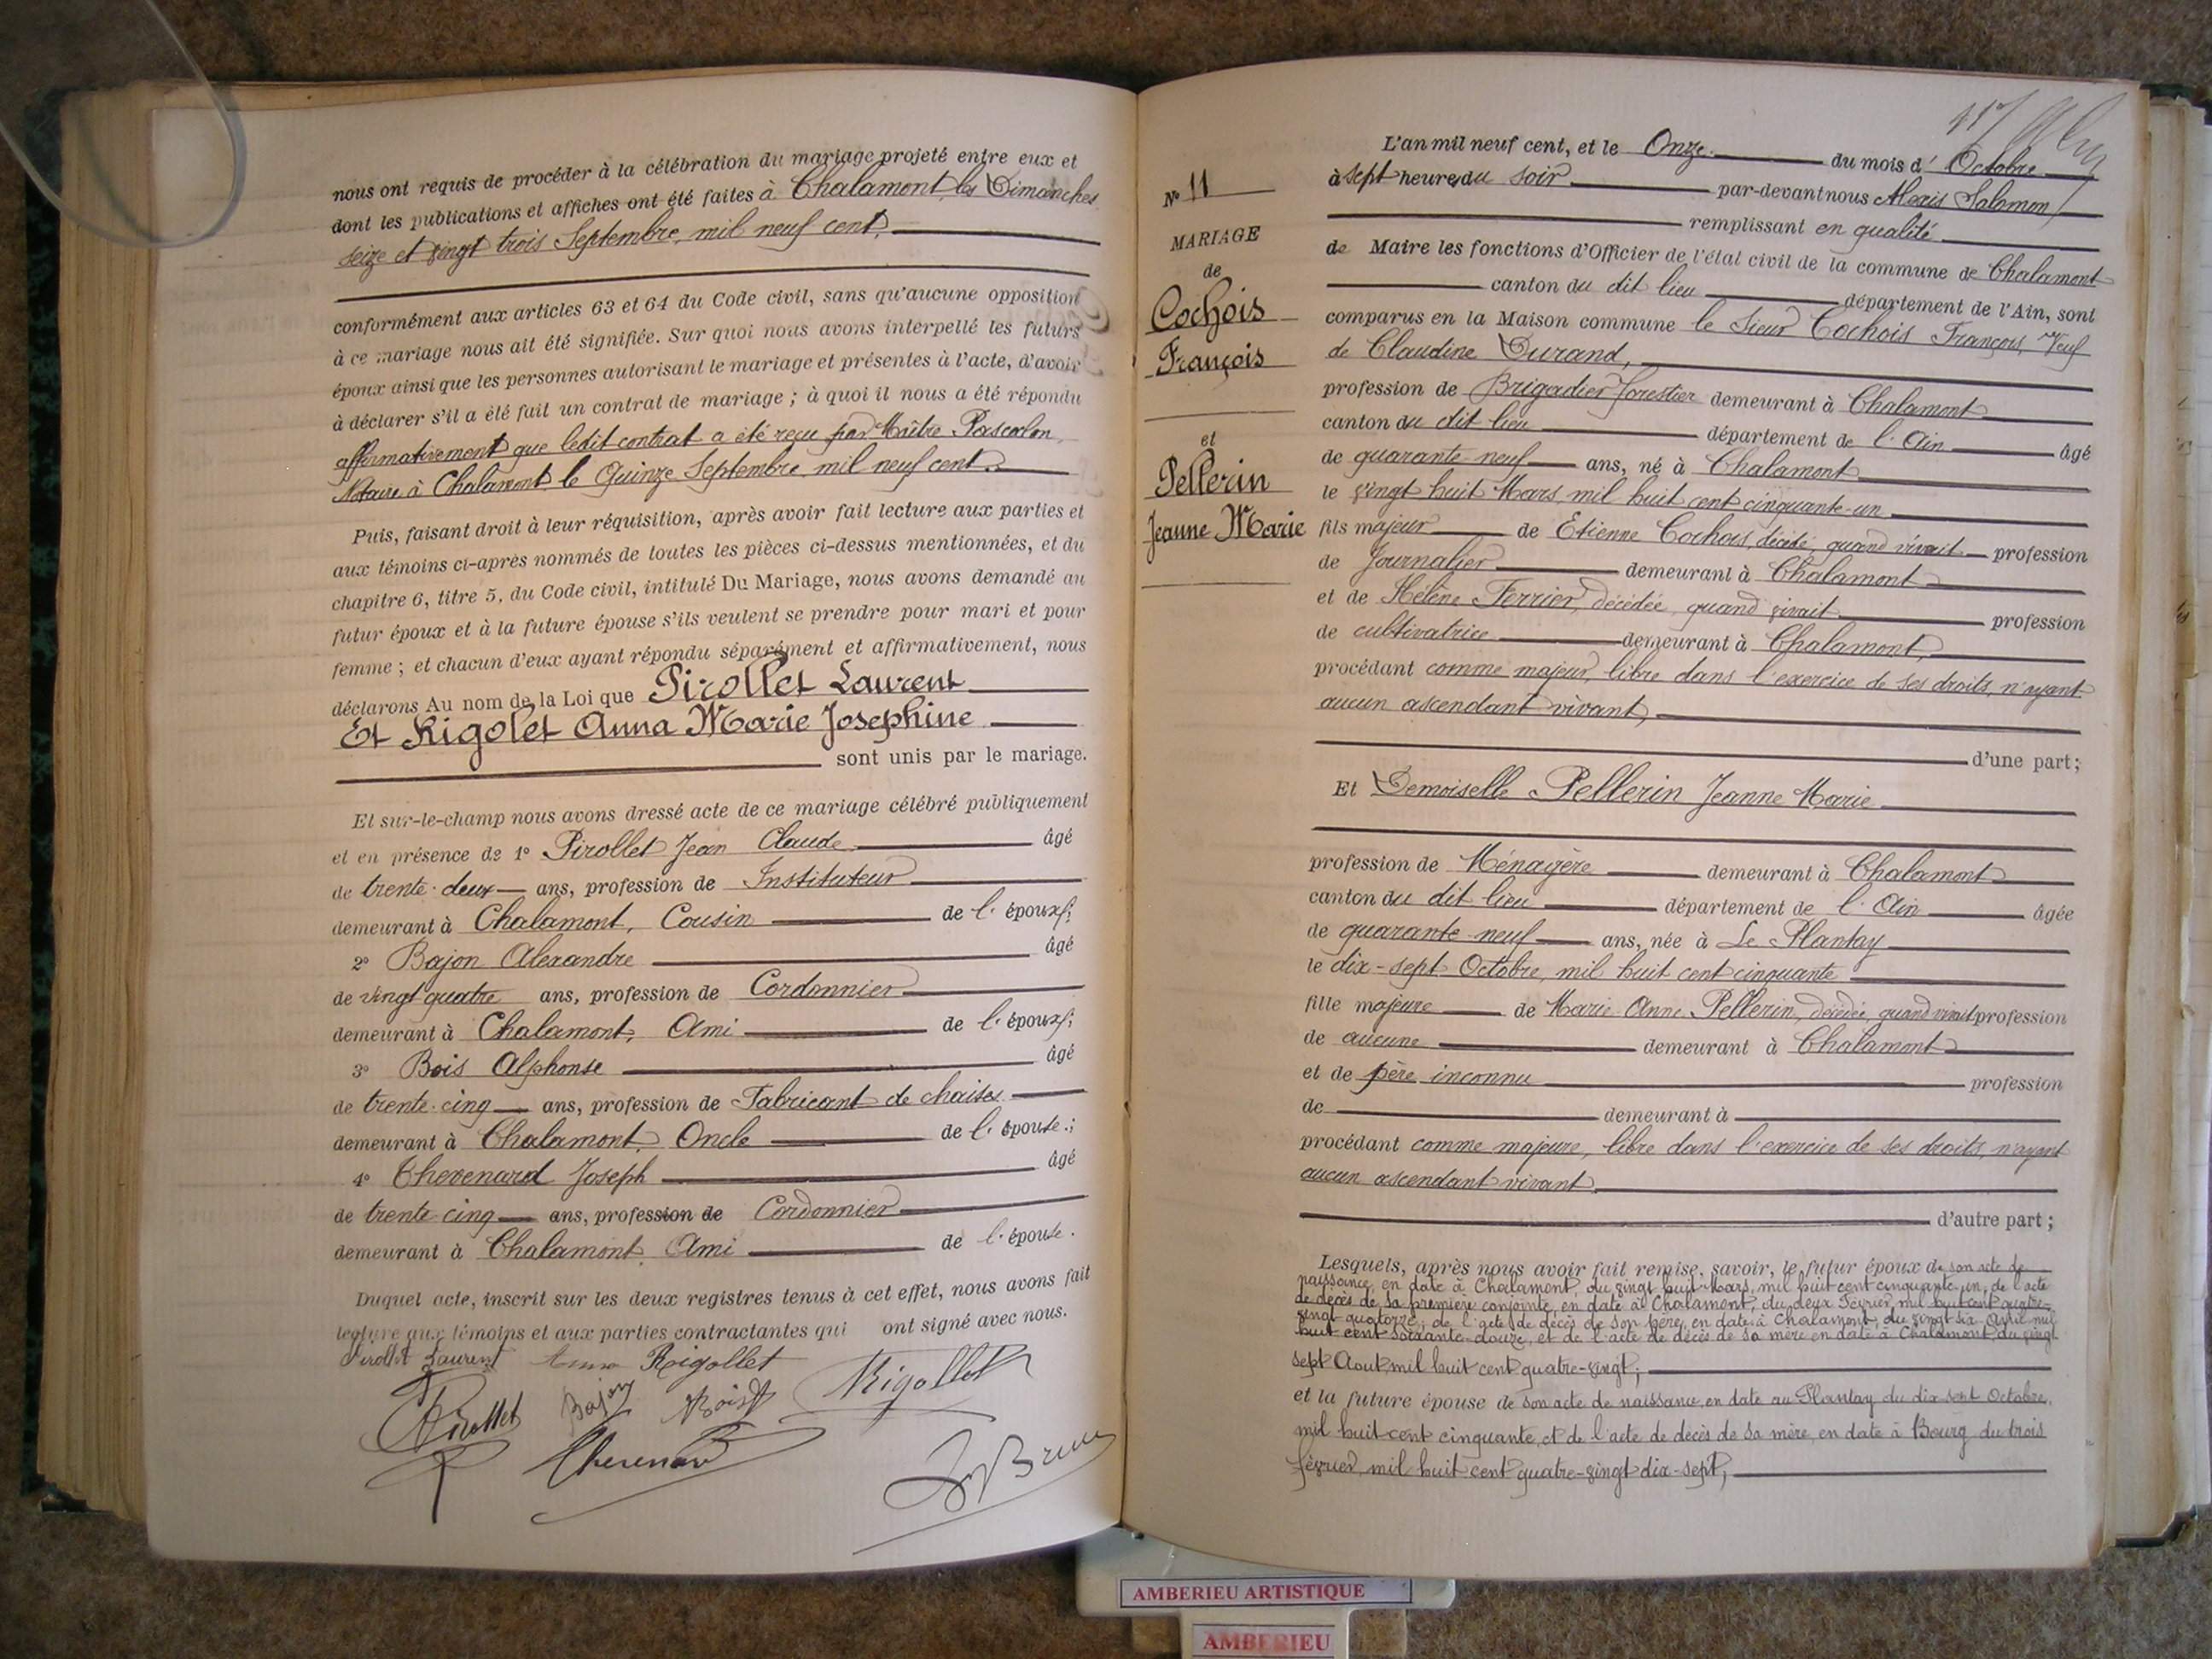 nous ont requis de procéder à la célébration du mariage projeté entre eux et
dont les publications et affiches ont été faites à Chalamont, les Dimanches
seize et vingt trois Septembre, mil neuf cent,
conformément aux articles 63 et 64 du Code civil, sans qu'aucune opposition
à ce mariage nous ait été signifiée. Sur quoi nous avons interpellé les futurs
époux ainsi que les personnes autorisant le mariage et présentes à l'acte, d'avoir
à déclarer s'il a été fait un contrat de mariage ; à quoi il nous a été répondu
affirmativement que ledit contrat a été reçu par Maître Pascalon,
Notaire à Chalamont, le Quinze Septembre, mil neuf cent.
Puis, faisant droit à leur réquisition, après avoir fait lecture aux parties et
aux témoins ci-après nommés de toutes les pièces ci-dessus mentionnées, et du
chapitre 6, titre 5, du Code civil, intitulé Du Mariage, nous avons demandé au
futur époux et à la future épouse s'ils veulent se prendre pour mari et pour
femme ; et chacun d'eux ayant répondu séparément et affirmativement, nous
déclarons Au nom de la Loi que Pirollet Laurent
Et Rigolet Anna Marie Josephine
sont unis par le mariage.
Et sur-le-champ nous avons dressé acte de ce mariage célébré publiquement
et en présence de 1° Pirollet Jean Claude âgé
de trente-deux ans, profession de Instituteur
demeurant à Chalamont, Cousin de l'époux ;
2° Bajon Alexandre âgé
de vingt quatre ans, profession de Cordonnier
demeurant à Chalamont, Ami de l'époux ;
3° Bois Alphonse âgé
de trente-cinq ans, profession de Fabricant de chaises
demeurant à Chalamont, Oncle de l'épouse ;
4° Thevenard Joseph âgé
de trente-cinq ans, profession de Cordonnier
demeurant à Chalamont, Ami de l'épouse.
Duquel acte, inscrit sur les deux registres tenus à cet effet, nous avons fait
lecture aux témoins et aux parties contractantes qui ont signé avec nous.
Pirollet Laurent Anna Rigollet
Pirollet Bajon Bois Rigollet
Thevenard
N° 11
MARIAGE
de
Cochois
François
et
Pellerin
Jeanne Marie
L'an mil neuf cent, et le Onze du mois d'Octobre
à sept heures du soir par-devant nous Alexis Salomon
remplissant en qualité
de Maire les fonctions d'Officier de l'état civil de la commune de Chalamont
canton du dit lieu département de l'Ain, sont
comparus en la Maison commune le Sieur Cochois François, Veuf
de Claudine Durand,
profession de Brigadier forestier demeurant à Chalamont
canton du dit lieu département de l'Ain âgé
de quarante-neuf ans, né à Chalamont
le vingt huit Mars, mil huit cent cinquante-un
fils majeur de Etienne Cochois, décédé, quand vivait profession
de Journalier demeurant à Chalamont
et de Hélène Ferrier, décédée, quand vivait profession
de cultivatrice demeurant à Chalamont,
procédant comme majeur, libre dans l'exercice de ses droits, n'ayant
aucun ascendant vivant,
d'une part ;
Et Demoiselle Pellerin Jeanne Marie
profession de Ménagère demeurant à Chalamont
canton du dit lieu département de l'Ain âgée
de quarante-neuf ans, née à Le Plantay
le dix-sept Octobre, mil huit cent cinquante
fille majeure de Marie Anne Pellerin, décédée, quand vivait profession
de aucune demeurant à Chalamont
et de père inconnu profession
de demeurant à
procédant comme majeure, libre dans l'exercice de ses droits, n'ayant
aucun ascendant vivant
d'autre part ;
Lesquels, après nous avoir fait remise, savoir, le futur époux de son acte de
naissance, en date à Chalamont, du vingt huit Mars, mil huit cent cinquante-un, de l'acte
de décès de sa première conjointe, en date à Chalamont, du deux Février, mil huit cent quatre-
vingt quatorze, de l'acte de décès de son père, en date à Chalamont, du vingt six Avril mil
huit cent soixante-douze, et de l'acte de décès de sa mère en date à Chalamont du vingt
sept Aout, mil huit cent quatre-vingt ;
et la future épouse de son acte de naissance, en date au Plantay du dix sept Octobre,
mil huit-cent cinquante, et de l'acte de décès de sa mère, en date à Bourg du trois
février, mil huit cent quatre-vingt dix-sept,
AMBERIEU ARTISTIQUE
AMBERIEU